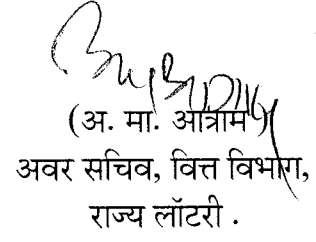 (अ. मा. आत्राम)
अवर सचिव, वित्त विभाग,
राज्य लॉटरी .